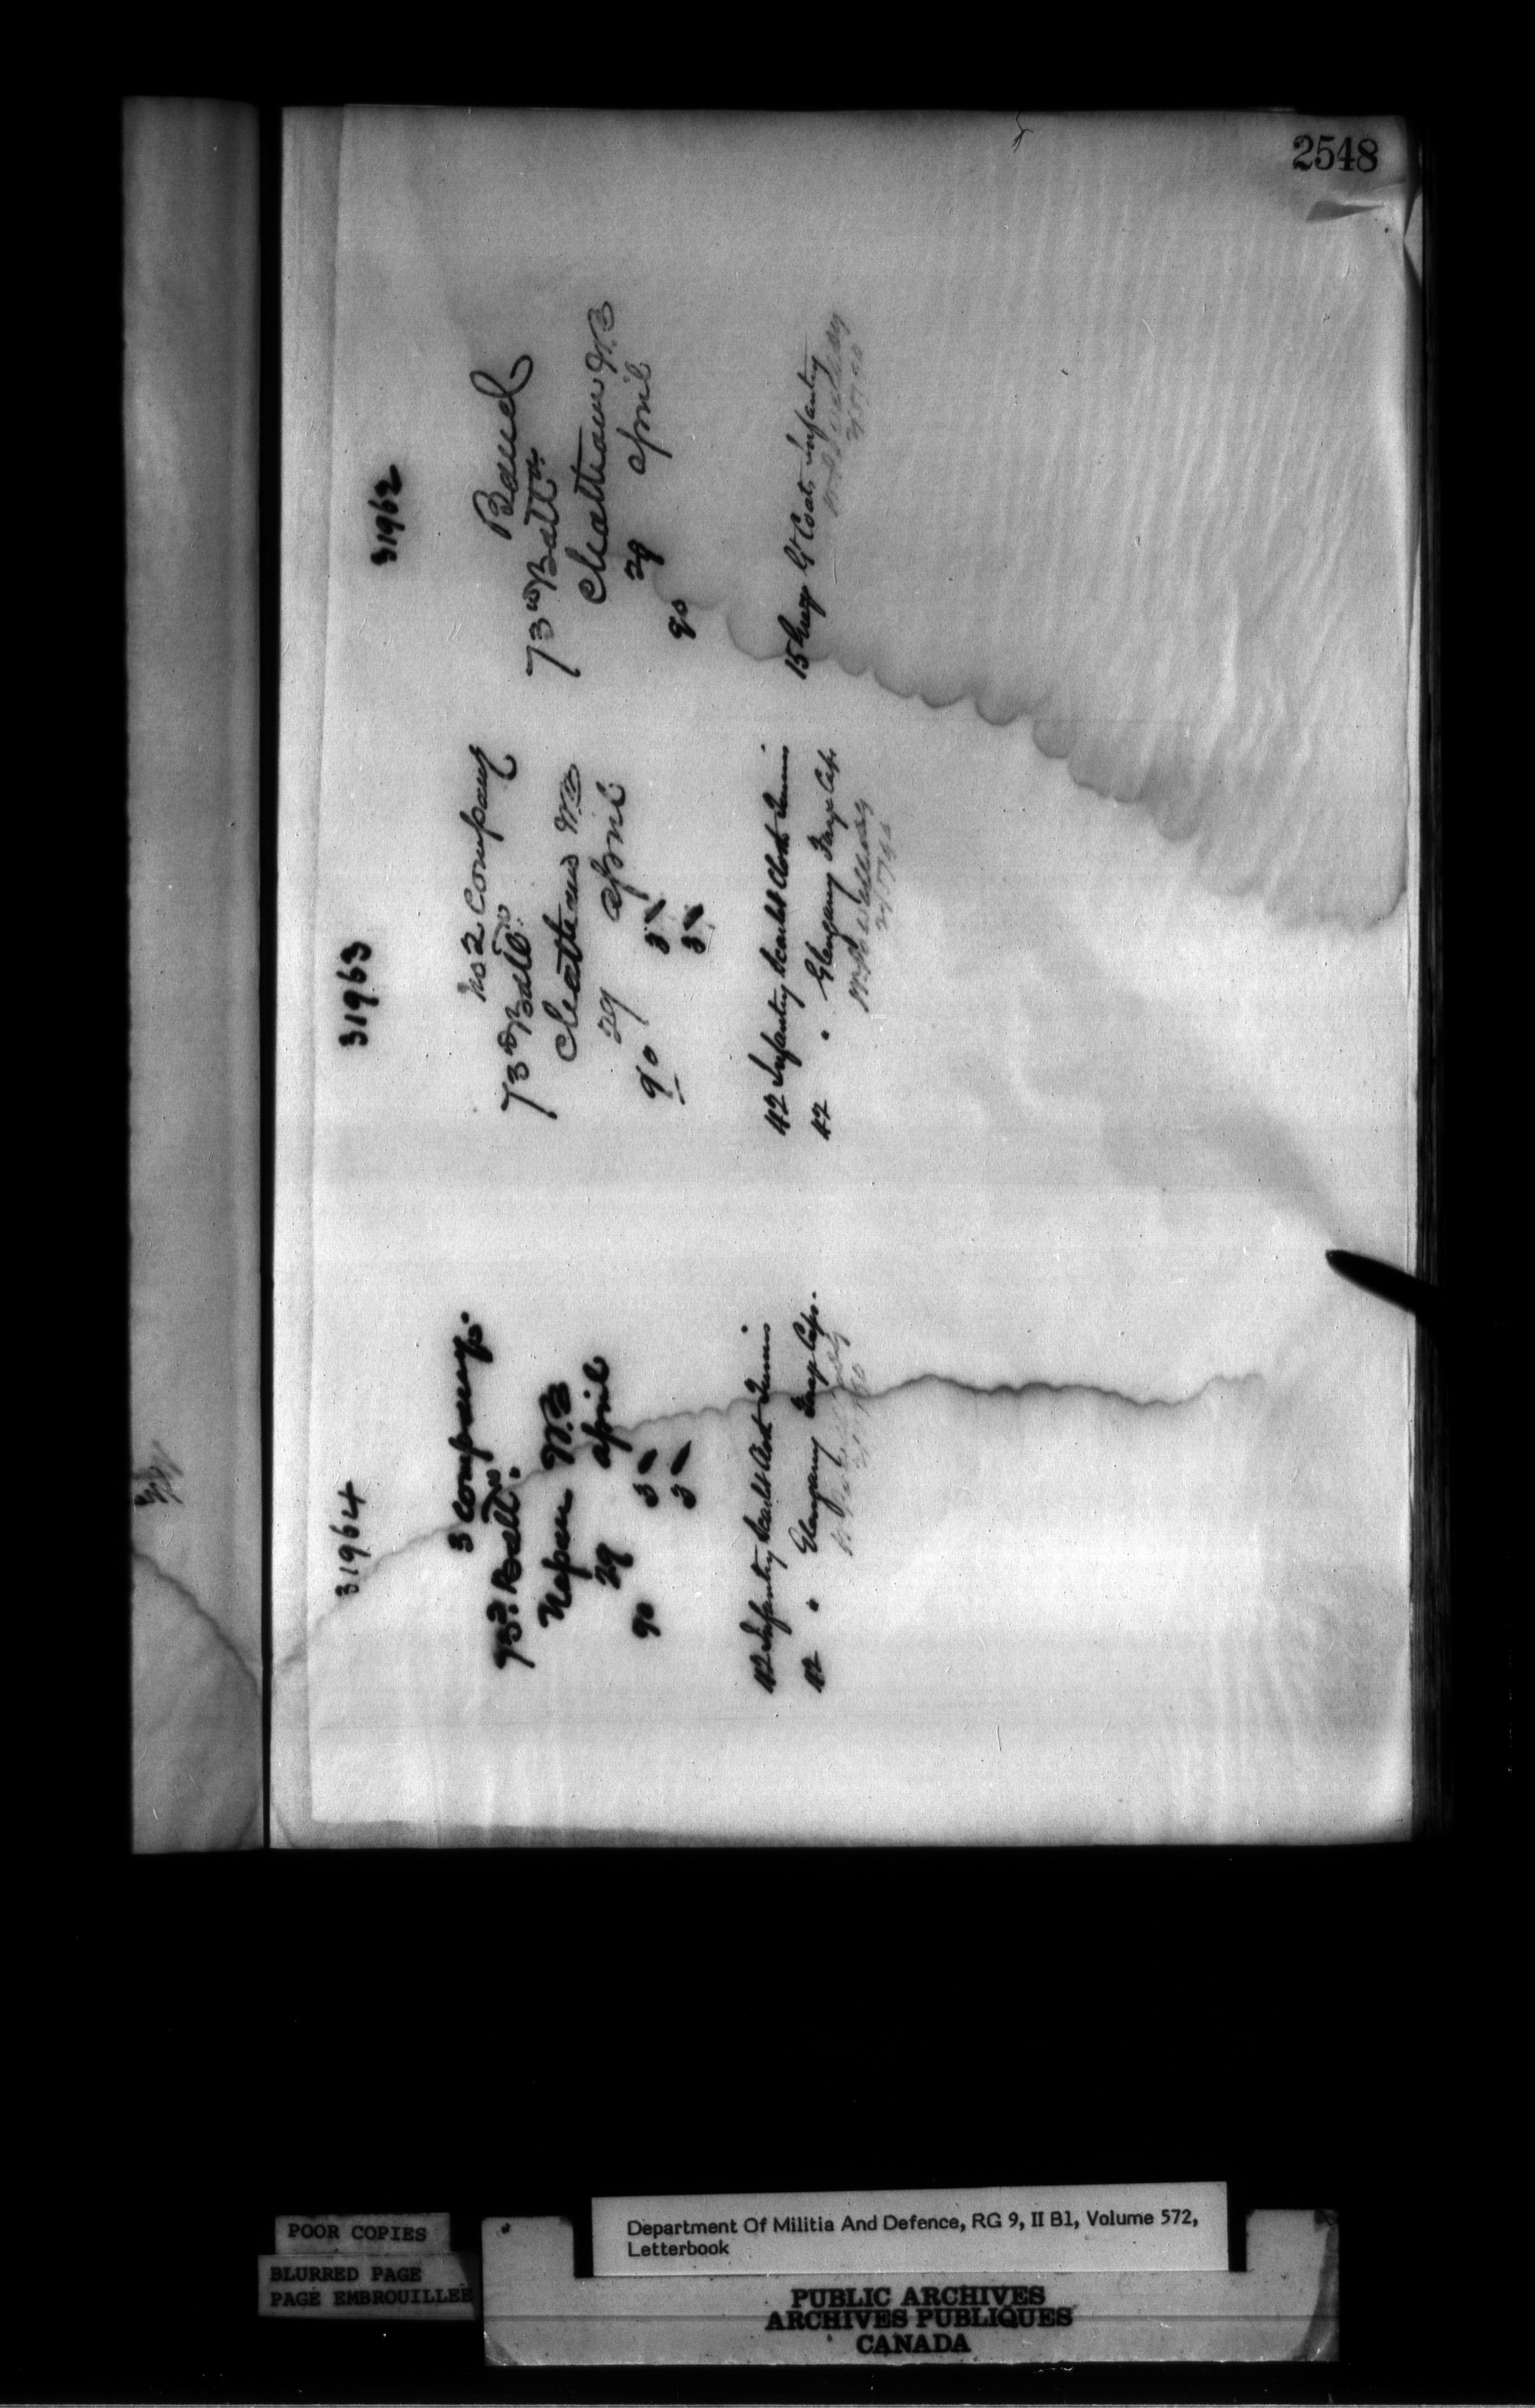 2548
31962
Band
73rd Battn
Chatham N.B
29 April
90
15 Grey Gt Coats Infantry
31963
No 2 Company
73rd Battn
Chatham NB
29 April
90 3
3
42 Infantry Scarlet Cloth Tunics
42 " Glengarry Forage Caps
31964
3 Company.
73rd Battn.
Napan N.B
29 April
90 3
3
42 Infantry Scarlet Cloth Tunics
42 " Glengarry Forage Caps.
POOR COPIES
BLURRED PAGE
PAGE EMBROUILLEE
Department Of Militia And Defence, RG 9, II B1, Volume 572,
Letterbook
PUBLIC ARCHIVES
ARCHIVES PUBLIQUES
CANADA